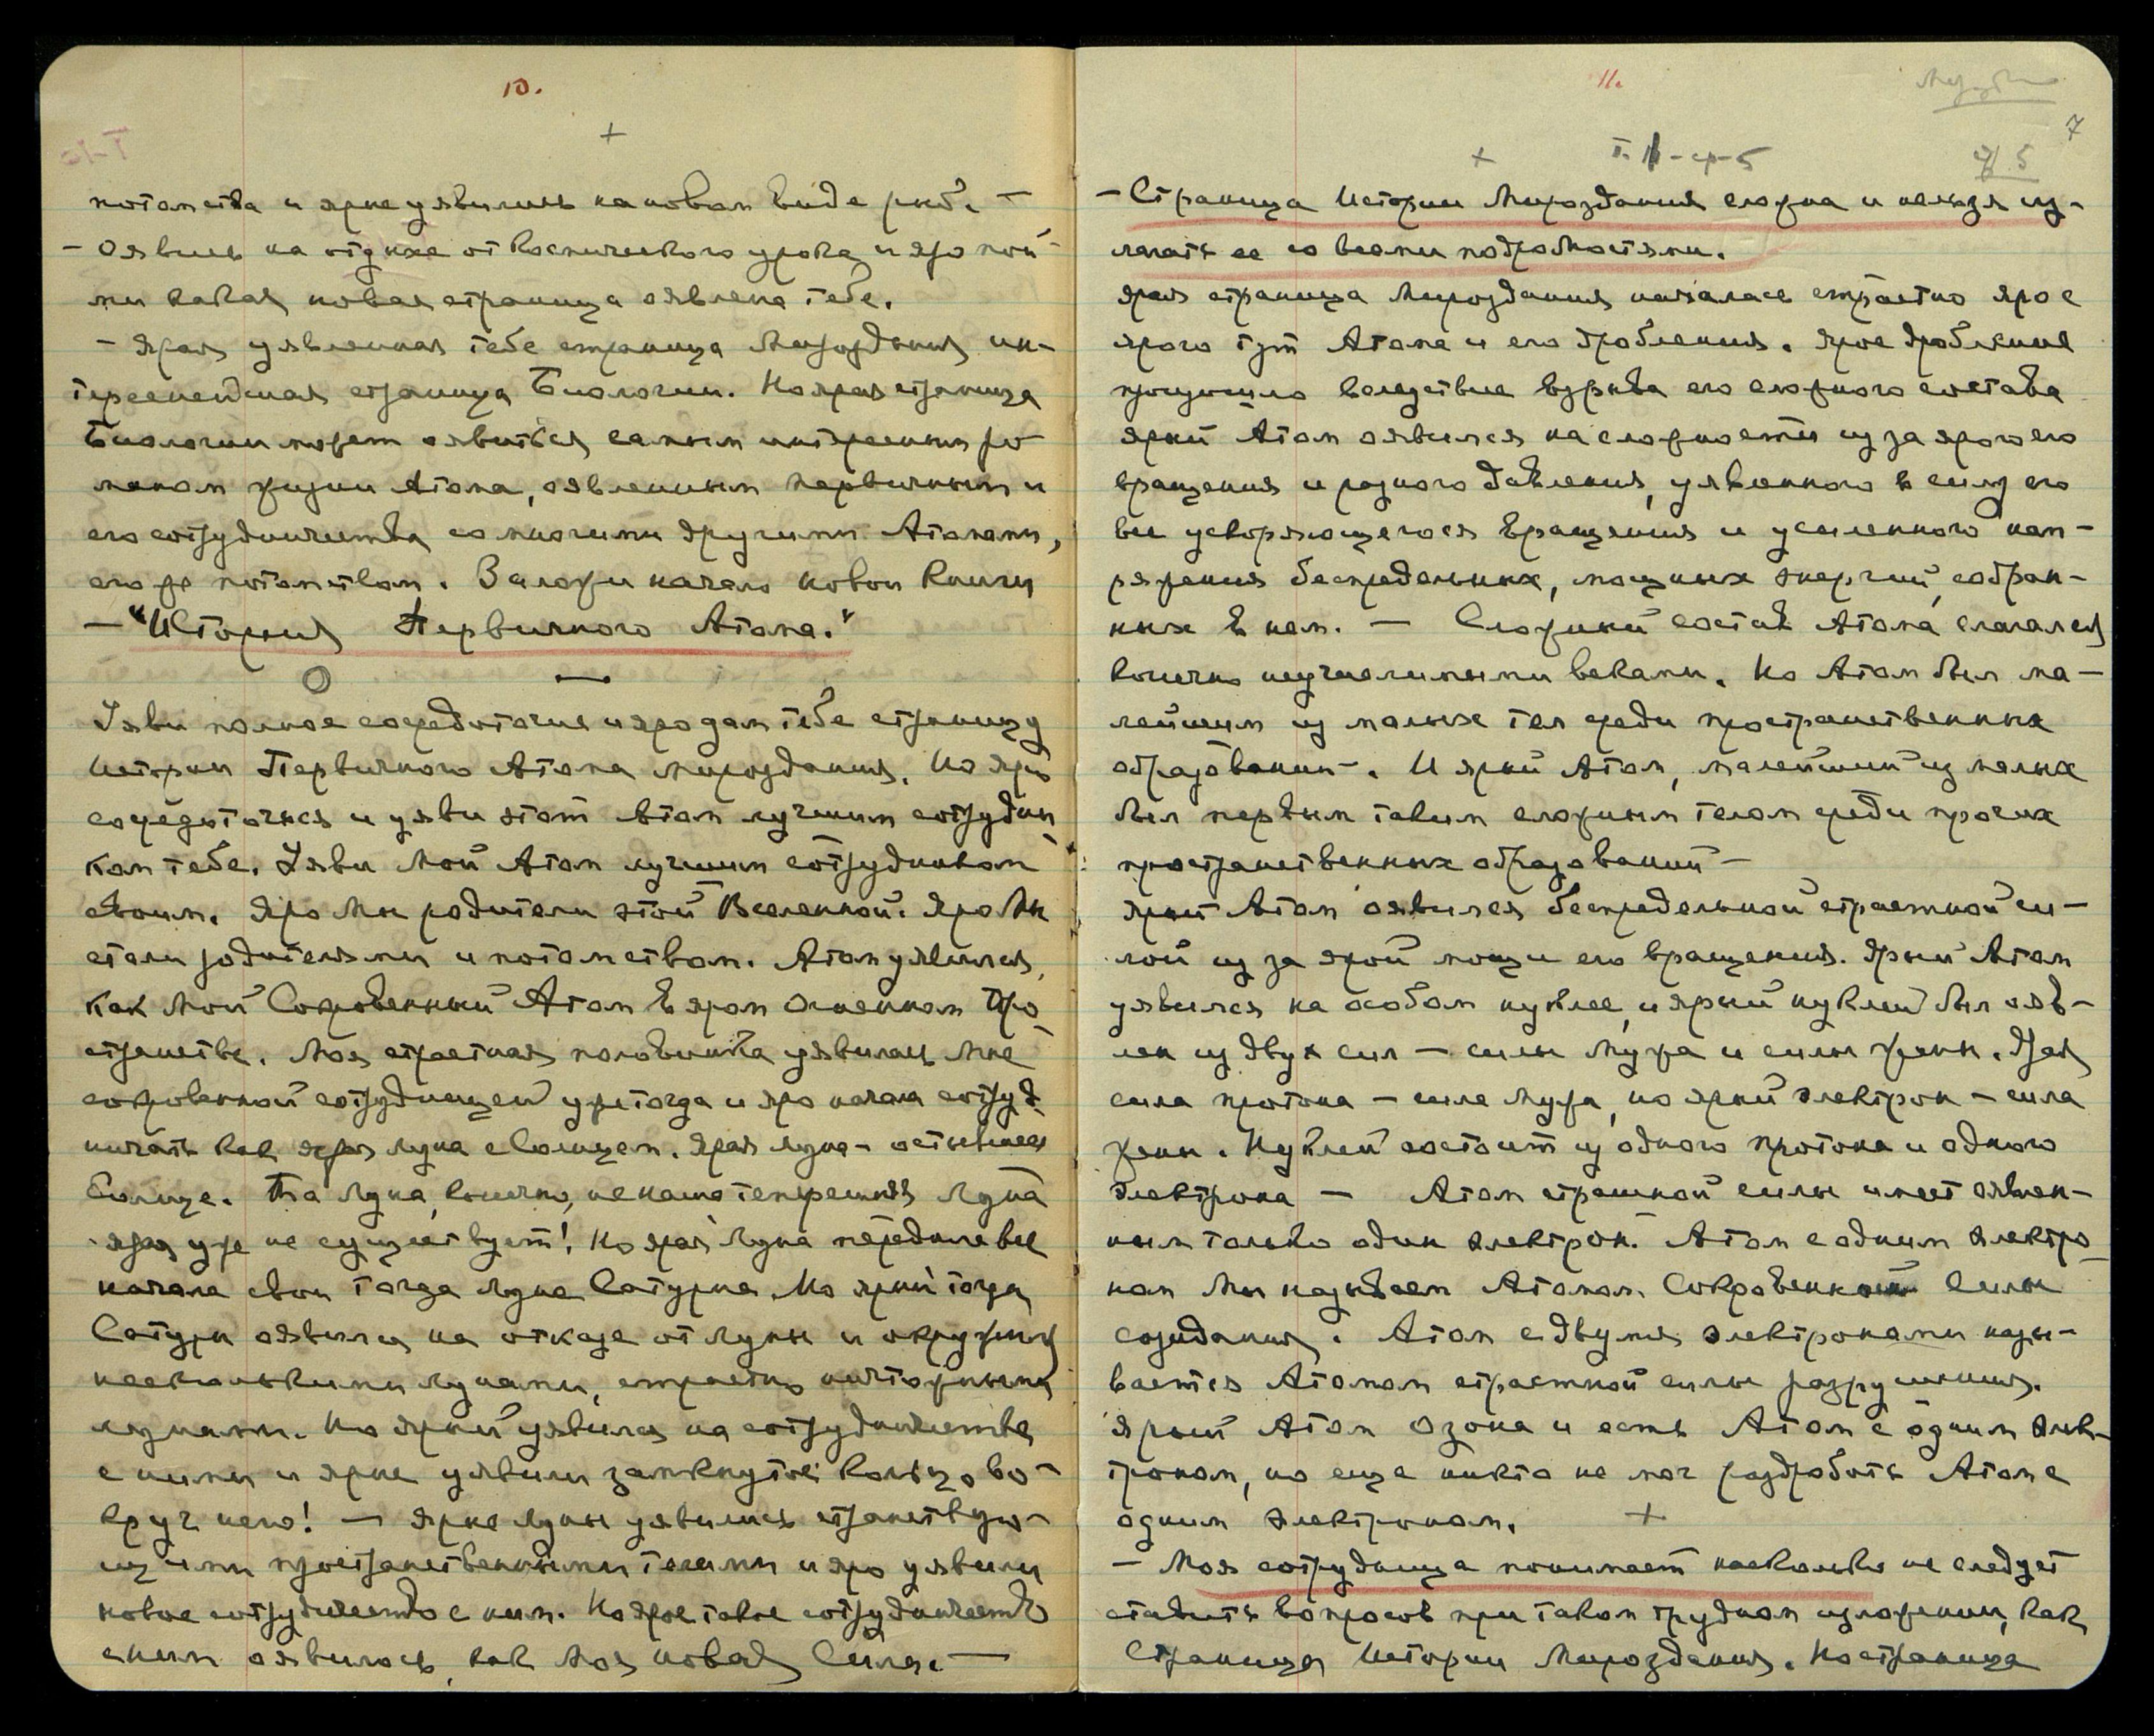 10.
+
потомства и ярые уявились на новом виде рыб. —
— Оявись на отдыхе от Космического урока и яро пой-
ми какая новая страница оявлена тебе.
— Ярая уявленная тебе страница Мироздания ин-
тереснейшая страница Биологии. Но ярая страница
Биологии может оявиться самым интересным ро-
маном жизни Атома, оявленным первичным и
его сотрудничества со многими другими Атомами,
его же потомством. Заложи начало новой Книги
— "История Первичного Атома."
Уяви полное сосредоточие и яро дам тебе страницу
Истории Первичного Атома Мироздания. Но яро
сосредоточься и уяви этот Атом лучшим сотрудни-
ком тебе. Уяви Мой Атом лучшим сотрудником
своим. Яро Мы родители этой Вселенной. Яро Мы
стали родителями и потомством. Атом уявился,
как Мой Сокровенный Атом в яром Огненном Про-
странстве. Моя страстная половинка уявилась Мне
сокровенной сотрудницей уже тогда и яро начала сотруд-
ничать как ярая Луна с Солнцем. Ярая Луна — остывшее
Солнце. Та Луна, конечно, не наша теперешняя Луна
ярая уже не существует! Но ярая Луна передала все
начала свои тогда Луне Сатурна. Но ярый тогда
Сатурн оявился на отказе от Луны и окружил
несколькими лунами, страстно ничтожными
лунами. Но ярый уявился на сотрудничестве
с ними и ярые уявили замкнутое кольцо во-
круг него! — Ярые Луны уявились странствую-
щими пространственными телами и яро уявили
новое сотрудничество с ним. Но ярое такое сотрудничество
с ним оявилось, как Моя новая Сила. —
11.
7
+
— Страница Истории Мироздания сложна и нельзя из-
лагать ее со всеми подробностями.
Ярая страница Мироздания началась страстно яро с
ярого тут Атома и его дробления. Ярое дробление
произошло вследствие взрыва его сложного состава
Ярый Атом оявился на сложности из за ярого его
вращения и разного давления, уявленного в силу его
все ускоряющегося вращения и усиленного нап-
ряжения беспредельных, мощных энергий, собран-
ных в нем. — Сложный состав Атома слагался
конечно неучислимыми веками. Но Атом был ма-
лейшим из малых тел среди пространственных
образований. И ярый Атом, малейший из малых
был первым таким сложным телом среди прочих
пространственных образований —
Ярый Атом оявился беспредельной страстной си-
лой из за ярой мощи его вращения. Ярый Атом
уявился на особом нуклее, и ярый нуклей был ояв-
лен из двух сил — силы Мужа и силы Жены. Ярая
сила протона — сила Мужа, но ярый электрон — сила
Жены. Нуклей состоит из одного протона и одного
электрона — Атом страшной силы имеет оявлен-
ным только один электрон. Атом с одним электро-
ном Мы называем Атомом Сокровенной Силы
созидания. Атом с двумя электронами назы-
вается Атомом страстной силы разрушения.
Ярый Атом Озона и есть Атом с одним элек-
троном, но еще никто не мог раздробить Атом с
одним электроном. +
— Моя сотрудница понимает насколько не следует
ставить вопросов при таком трудном изложении, как
Страница Истории Мироздания. Но страница